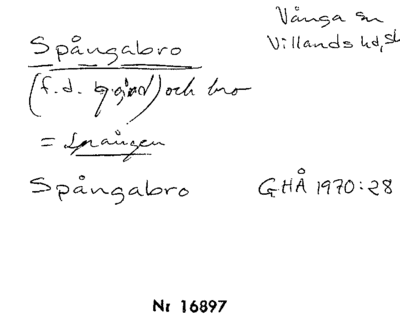 Vånga sn
Spångabro
Villands hd, sk
(f.d. och bro
= Spången
Spångabro
GHÅ 1970:28
Nr 16897